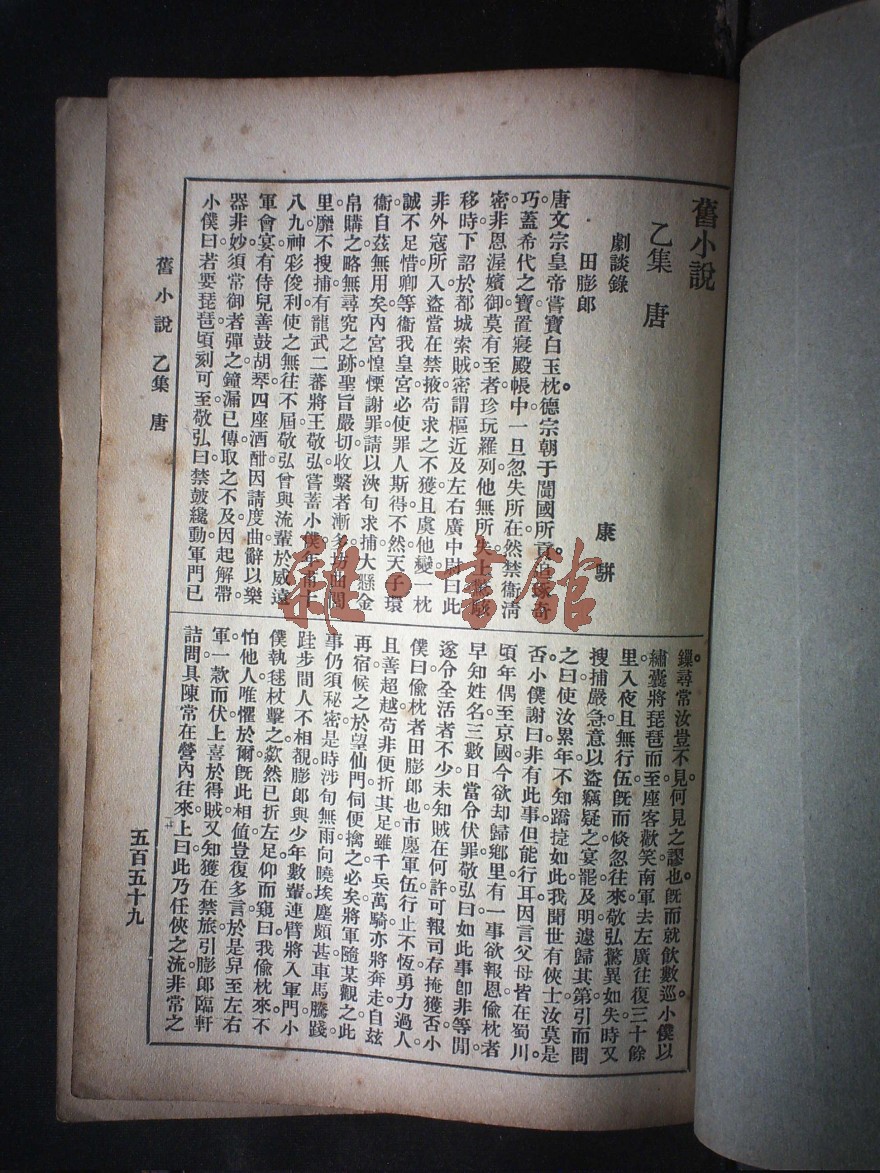 舊小說
乙集　唐
劇談錄　康駢
田膨郎
唐文宗皇帝嘗寶白玉枕。德宗朝于闐國所貢。追琢奇
巧。蓋希代之寶。置寢殿帳中。一旦忽失所在。然禁衞清
密。非恩渥嬪御。莫有至者。珍玩羅列。他無所失。上驚駭
移時。下詔於都城索賊。密謂樞近及左右廣中尉曰。此
非外寇所入。盜當在禁掖。苟求之不獲。且虞他變。一枕
誠不足惜。卿等衞我皇宮。必使罪人斯得。不然。天子環
衞自茲無用矣。內宮惶慄謝罪。請以浹旬求捕。大懸金
帛購之。略無尋究之跡。聖旨嚴切。收繫者漸多。坊曲閭
里。靡不搜捕。有龍武二蕃將王敬弘嘗蓄小僕。年甫十
八九。神彩俊利。使之無往不屆。敬弘曾與流輩於威遠
軍會宴。有侍兒善鼓胡琴。四座酒酣。因請度曲。辭以樂
器非妙。須常御者彈之。鐘漏已傳。取之不及。因起解帶。
小僕曰。若要琵琶。頃刻可至。敬弘曰。禁鼓纔動。軍門已
鏁。尋常汝豈不見。何見之謬也。旣而就飮數巡。小僕以
繡囊將琵琶而至。座客歡笑。南軍去左廣往復三十餘
里。入夜且無行伍。旣而倐忽往來。敬弘驚異如失。時又
搜捕嚴急。意以盜竊疑之。宴罷及明。遽歸其第。引而問
之曰。使汝累年。不知蹻捷如此。我聞世有俠士。汝莫是
否。小僕謝曰。非有此事。但能行耳。因言父母皆在蜀川。
頃年偶至京國。今欲却歸鄉里。有一事欲報恩。偷枕者
早知姓名。三數日當令伏罪。敬弘曰。如此事卽非等閒。
遂令全活者不少。未知賊在何許。可報司存掩獲否。小
僕曰。偷枕者田膨郎也。市廛軍伍。行止不恆。勇力過人。
且善超越。苟非便折其足。雖千兵萬騎。亦將奔走。自茲
再宿候之於望仙門。伺便擒之必矣。將軍隨某觀之。此
事仍須秘密。是時涉旬無雨。向曉埃塵頗甚。車馬騰踐。
跬步間人不相覩。膨郎與少年數輩連臂將入軍門。小
僕執毬杖擊之。歘然已折左足。仰而窺曰。我偷枕來。不
怕他人。唯懼於爾。旣此相値。豈復多言。於是舁至左右
軍。一款而伏。上喜於得賊。又知獲在禁旅。引膨郎臨軒
詰問。具陳常在營內往來。上曰。此乃任俠之流。非常之
舊小說　乙集　唐
五百五十九
雜·書館